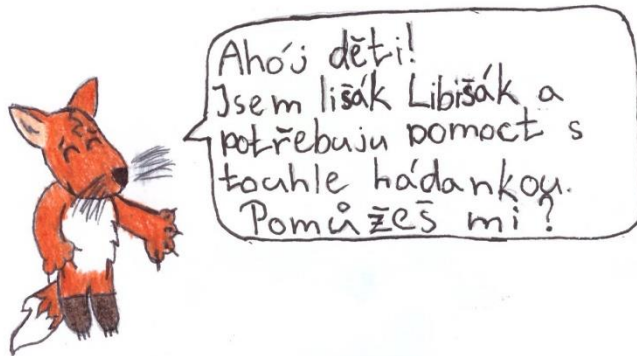 Ahoj děti!
Jsem lišák Libišák a
potřebuju pomoct s
touhle hádankou.
Pomůžeš mi?